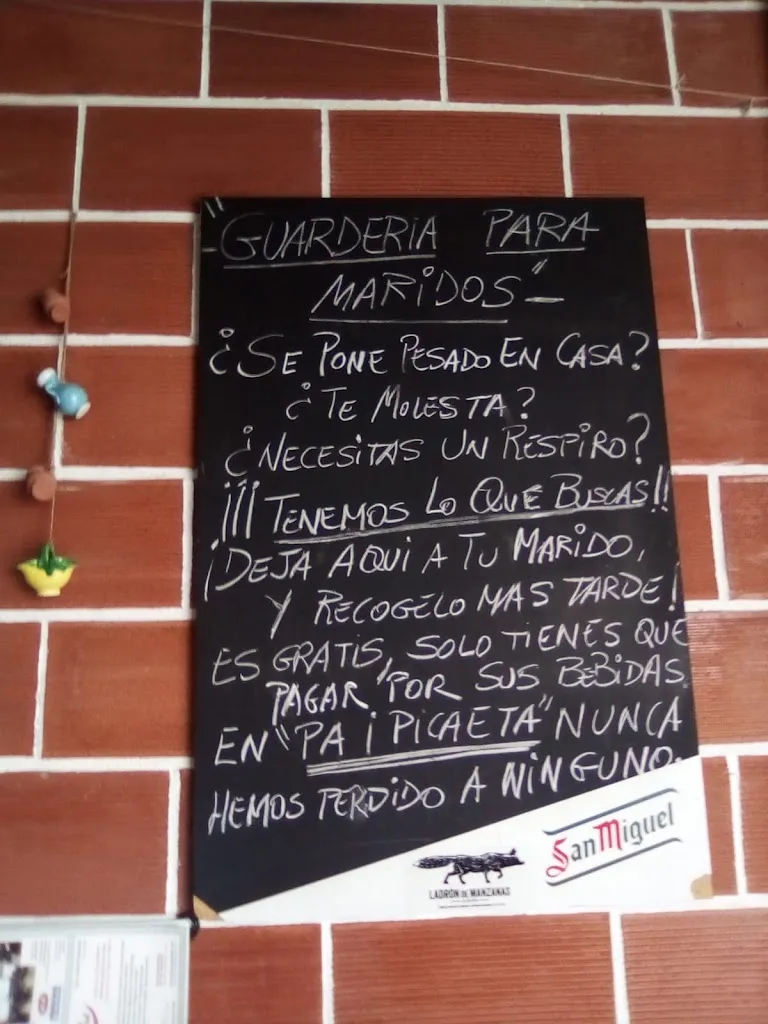 "
-GUARDERIA PARA
MARIDOS"-
¿SE PONE PESADO EN CASA?
¿TE MOLESTA?
¿NECESITAS UN RESPIRO?
¡¡¡TENEMOS LO QUE BUSCAS!!
¡DEJA AQUI A TU MARIDO,
Y RECOGELO MAS TARDE!
ES GRATIS, SOLO TIENES QUE
PAGAR POR SUS BEBIDAS
EN "PA i PICAETA" NUNCA
HEMOS PERDIDO A NINGUNO.
LADRÓN DE MANZANAS
San Miguel